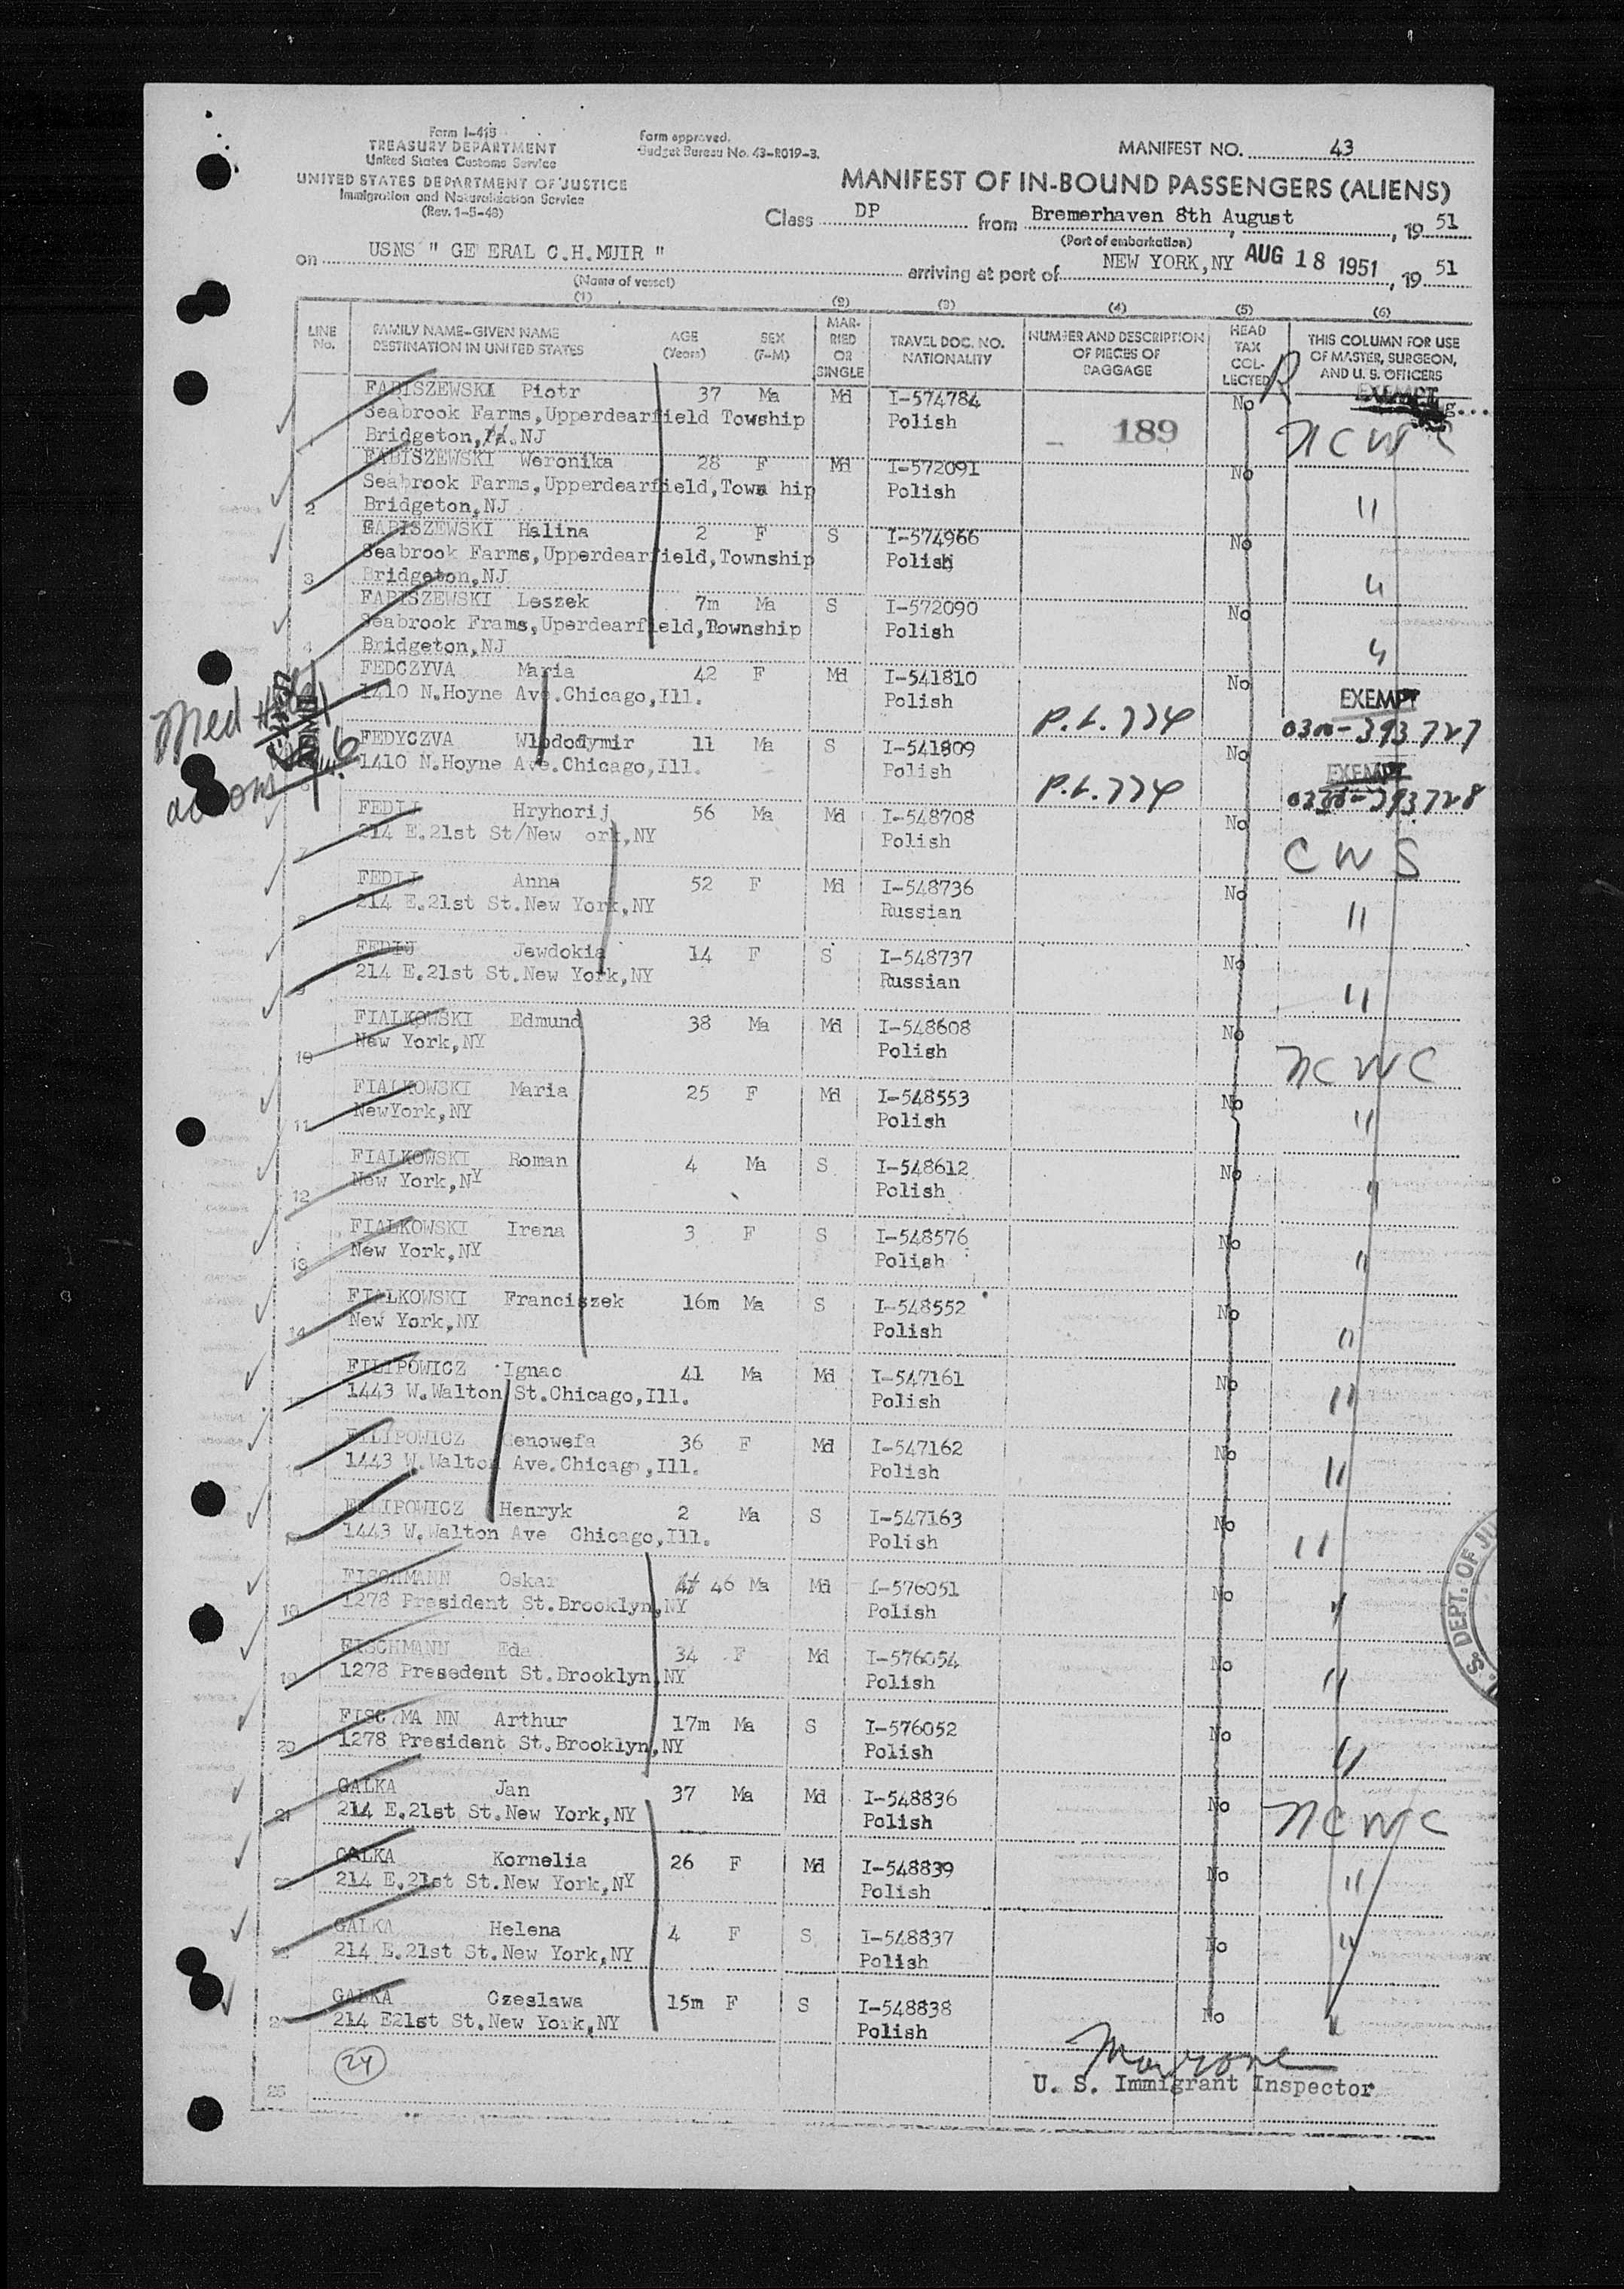 Form I-415
TREASURY DEPARTMENT
United States Customs Service
UNITED STATES DEPARTMENT OF JUSTICE
Immigration and Naturalization Service
(Rev. 1-5-48)
Form approved.
Budget Bureau No. 43-R019-3.
MANIFEST NO. 43
MANIFEST OF IN-BOUND PASSENGERS (ALIENS)
Class DP from Bremerhaven 8th August, 1951
(Port of embarkation)
on USNS " GE ERAL C.H.MUIR " arriving at port of NEW YORK,NY AUG 18 1951, 1951
(Name of vessel)
(1) (2) (3) (4) (5) (6)
LINE No. FAMILY NAME-GIVEN NAME DESTINATION IN UNITED STATES AGE (Years) SEX (F-M) MARRIED OR SINGLE TRAVEL DOC. NO. NATIONALITY NUMBER AND DESCRIPTION OF PIECES OF BAGGAGE HEAD TAX COLLECTED THIS COLUMN FOR USE OF MASTER, SURGEON, AND U. S. OFFICERS
FABISZEWSKI Piotr 37 Ma Md I-574784 No EXEMPT
Seabrook Farms,Upperdearfield Towship Polish 189 NCWC
Bridgeton, NJ
FABISZEWSKI Weronika 28 F Md I-572091 No
Seabrook Farms,Upperdearfield,Town hip Polish "
2 Bridgeton,NJ
FABISZEWSKI Halina 2 F S I-574966 No
Seabrook Farms,Upperdearfield,Township Polish
3 Bridgeton,NJ "
FABISZEWSKI Leszek 7m Ma S I-572090 No
Seabrook Frams,Uperdearfield,Township Polish
4 Bridgeton,NJ "
FEDCZYVA Maria 42 F Md I-541810 No EXEMPT
1410 N.Hoyne Ave.Chicago,Ill. Polish P.L.774 0300-393727
Med Hold
FEDYCZVA Wlododymir 11 Ma S I-541809 No EXEMPT
1410 N.Hoyne Ave.Chicago,Ill. Polish P.L.774 0300-393728
6
FEDIJ Hryhorij 56 Ma Md I-548708 No
7 214 E.21st St/New ork,NY Polish CWS
FEDIJ Anna 52 F Md I-548736 No
8 214 E.21st St.New York,NY Russian "
FEDIJ Jewdokia 14 F S I-548737 No
9 214 E.21st St.New York,NY Russian "
FIALKOWSKI Edmund 38 Ma Md I-548608 No
10 New York,NY Polish NCWC
FIALKOWSKI Maria 25 F Md I-548553 No
11 NewYork,NY Polish "
FIALKOWSKI Roman 4 Ma S I-548612 No
12 New York,NY Polish "
FIALKOWSKI Irena 3 F S I-548576 No
13 New York,NY Polish "
FIALKOWSKI Franciszek 16m Ma S I-548552 No
14 New York,NY Polish "
FILIPOWICZ Ignac 41 Ma Md I-547161 No
1443 W.Walton St.Chicago,Ill. Polish "
FILIPOWICZ Genowefa 36 F Md I-547162 No
1443 W.Walton Ave.Chicago,Ill. Polish "
FILIPOWICZ Henryk 2 Ma S I-547163 No
1443 W.Walton Ave Chicago,Ill. Polish "
FISCHMANN Oskar 46 Ma Md I-576051 No
18 1278 President St.Brooklyn,NY Polish "
FISCHMANN Eda 34 F Md I-576054 No
19 1278 Presedent St.Brooklyn,NY Polish "
FISC MA NN Arthur 17m Ma S I-576052 No
20 1278 President St.Brooklyn,NY Polish "
GALKA Jan 37 Ma Md I-548836 No
21 214 E.21st St.New York,NY Polish NCWC
GALKA Kornelia 26 F Md I-548839 No
214 E.21st St.New York,NY Polish "
GALKA Helena 4 F S I-548837 No
214 E.21st St.New York,NY Polish "
GALKA Czeslawa 15m F S I-548838 No
214 E21st St.New York,NY Polish "
24
U. S. Immigrant Inspector
25
S. DEPT. OF JU